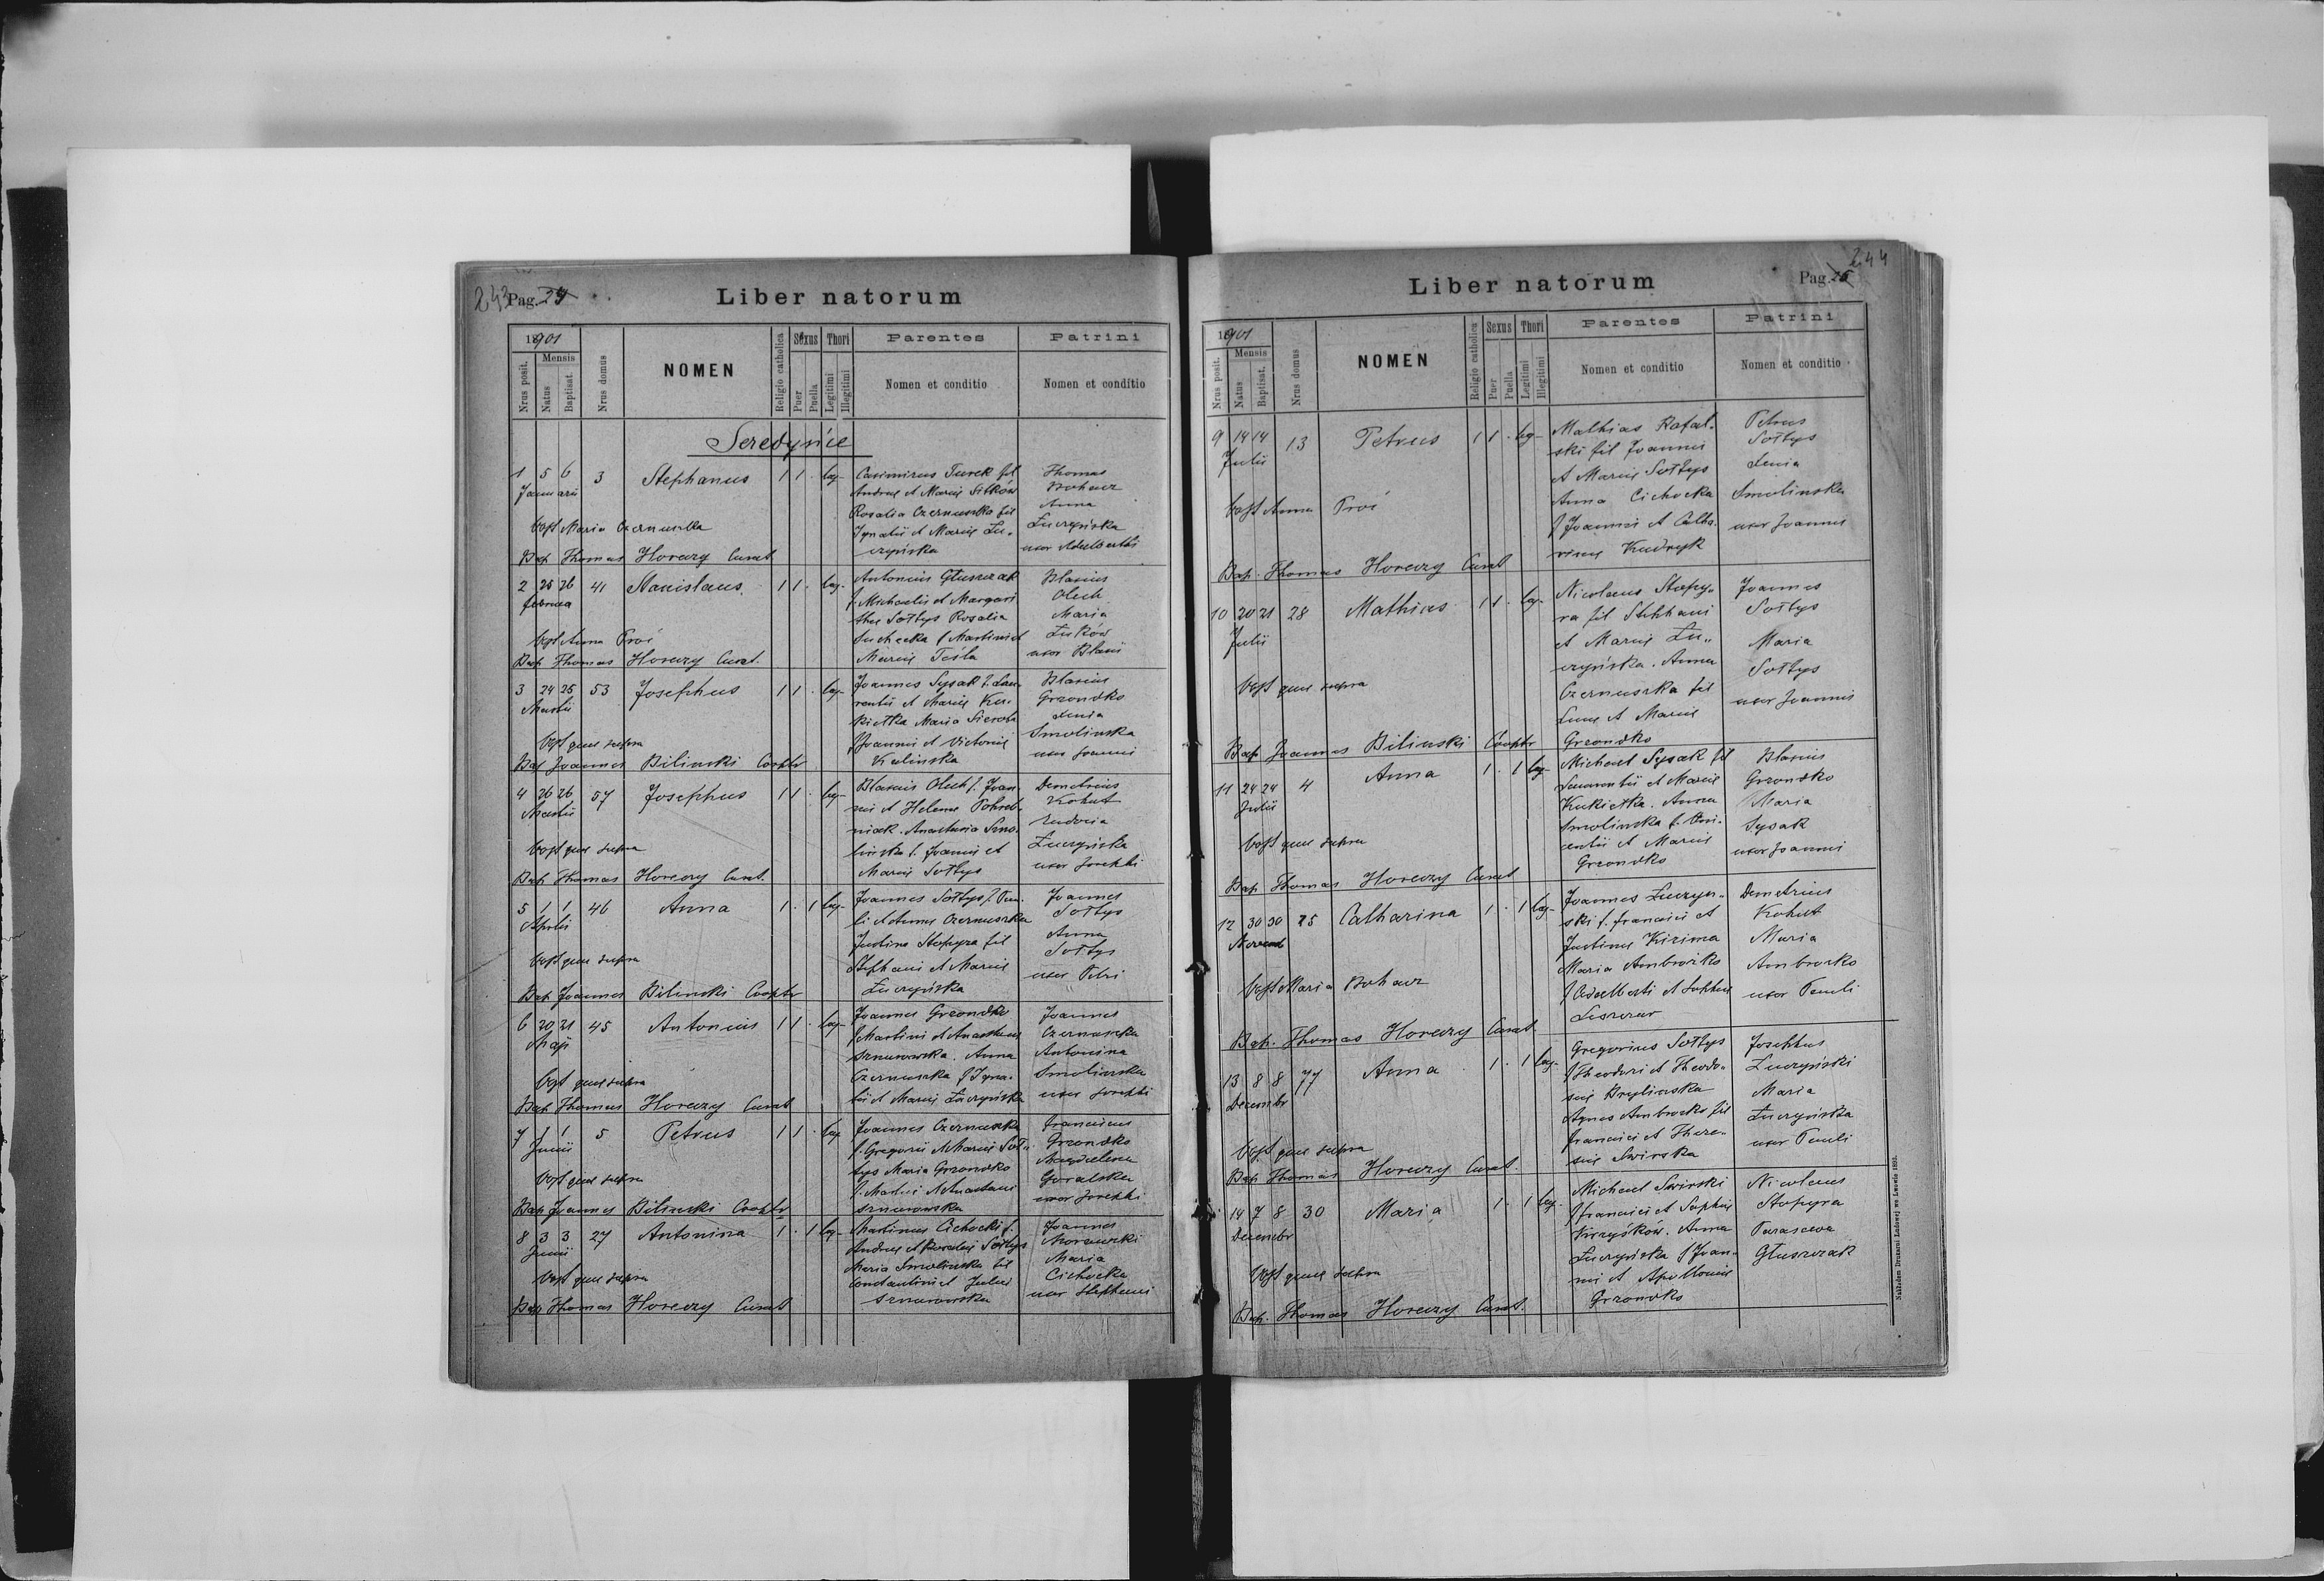 243 Pag. 24
Liber natorum
1901
Nrus posit.
Mensis
Natus
Baptisat.
Nrus domus
NOMEN
Religio catholica
Sexus
Puer
Puella
Thori
Legitimi
Illegitimi
Parentes
Nomen et conditio
Patrini
Nomen et conditio
Seredyńce
1 5 6 3 Stephanus 1 1 . leg-
Januarii
Casimirus Turek fil
Andreae et Mariae Sitków
Rosalia Czernuszka fil
Ignatii et Mariae Łu-
czyńska
Thomas
Bohacz
Anna
Łuczyńska
uxor Adalberti
Obst Maria Czernuszka
Bap Thomas Horeczy Curat
2 25 26 41 Stanislaus 1 1 . leg-
februa
Antonius Głuszczak
f. Michaelis et Margari
thae Sołtys Rosalia
Suchecka f Martini et
Mariae Teśla
Blasius
Olech
Maria
uxor Blasii
Obst Anna Proć
Bap Thomas Horeczy Curat.
3 24 25 53 Josephus 1 1 . leg-
Martii
Joannes Sysak f. Lau-
rentii et Mariae Ku-
kiełka Maria
f Joannis et Victoriae
Kulinska
Blasius
Grzondko
Smolinska
uxor Joannis
Obst quae supra
Bap Joannes Bilinski Cooptr
4 26 26 57 Josephus 1 1 . leg-
Martii
Blasius Olech f. Joan
nis et Helenae Pohreb-
niak. Anastasia Smo-
linska f. Joannis et
Mariae Sołtys
Demetrius
Kohut
Eudocia
Łuczyńska
uxor Josephi
Obst quae supra
Bap Thomas Horeczy Curat.
5 1 1 46 Anna 1 . 1 leg-
Aprilis
Joannes Sołtys f. Pau-
li et Annae Czernuszka
Justina Stopyra fil
Stephani et Mariae
Łuczyńska
Joannes
Sołtys
Anna
Sołtys
uxor Petri
Obst quae supra
Bap Joannes Bilinski Cooptr
6 20 21 45 Antonius 1 1 . leg-
Maji
Joannes Grzondko
f Martini et Anastasiae
Sznurowska. Anna
Czernuszka f Igna-
tii et Mariae Łuczyńska
Joannes
Czernuszka
Antonina
Smolinska
uxor Josephi
Obst quae supra
Bap Thomas Horeczy Curat
7 1 1 5 Petrus 1 1 . leg
Junii
Joannes Czernuszka
f. Gregorii et Mariae Soł-
tys Maria Grzondko
f. Martini et Anastasiae
Sznurowska
Franciscus
Grzondko
Magdalena
Goralska
uxor Josephi
Obst quae supra
Bap Joannes Bilinski Cooptr
8 3 3 27 Antonina 1 . 1 leg-
Junii
Martinus Cichocki f.
Andreae et Rosaliae Sołtys
Maria Smolinska fil
Constantini et Juliae
Sznurowska
Joannes
Morawski
Maria
Cichocka
uxor Stephani
Obst quae supra
Bap Thomas Horeczy Curat
244
Liber natorum
Pag. 25
1901
Nrus posit.
Mensis
Natus
Baptisat.
Nrus domus
NOMEN
Religio catholica
Sexus
Puer
Puella
Thori
Legitimi
Illegitimi
Parentes
Nomen et conditio
Patrini
Nomen et conditio
9 14 14 13 Petrus 1 1 . leg-
Julii
Mathias Rafal-
ski fil Joannis
et Mariae Sołtys
Anna Cichocka
f Joannis et Catha-
rinae Kudryk
Petrus
Sołtys
Smolinska
uxor Joannis
Obst Anna Proć
Bap. Thomas Horeczy Curat
10 20 21 28 Mathias 1 1 . leg-
Julii
Nicolaus Stopy-
ra fil Stephani
et Mariae Łu-
czyńska. Anna
Czernuszka fil
Lucae et Mariae
Grzondko
Joannes
Sołtys
Maria
Sołtys
uxor Joannis
Obst quae supra
Bap Joannes Bilinski Cooptr
11 24 24 4 Anna 1 . 1 leg-
Julii
Michael Sysak fil
Laurentii et Mariae
Kukiełka. Anna
Smolinska f.
et Mariae
Grzondko
Blasius
Grzondko
Maria
Sysak
uxor Joannis
Obst quae supra
Bap Thomas Horeczy Curat
12 30 30 25 Catharina 1 . 1 leg-
Novemb
Joannes Łuczyn-
ski f. Francisci et
Justinae Kirzma
Maria Ambrożko
f Adalberti et Sophiae
Leszczur
Demetrius
Kohut
Maria
Ambrozko
uxor Pauli
Obst Maria Bohacz
Bap. Thomas Horeczy Curat
13 8 8 77 Anna 1 . 1 leg-
Decembr
Gregorius Sołtys
f Theodori et Theodo-
siae Brylinska
Agnes Ambrozko fil
Francisci et There-
siae Swirska
Josephus
Łuczyński
Maria
Łuczyńska
uxor Pauli
Obst quae supra
Bap Thomas Horeczy Curat.
14 7 8 30 Maria 1 . 1 leg.
Decembr
Michael Swirski
f Francisci et Sophiae
Anna
Łuczyńska f Joan-
nis et Apolloniae
Grzondko
Nicolaus
Stopyra
Parascewa
Głuszczak
Obst quae supra
Bap. Thomas Horeczy Curat.
Nakładem Drukarni Ludowej we Lwowie 1893.